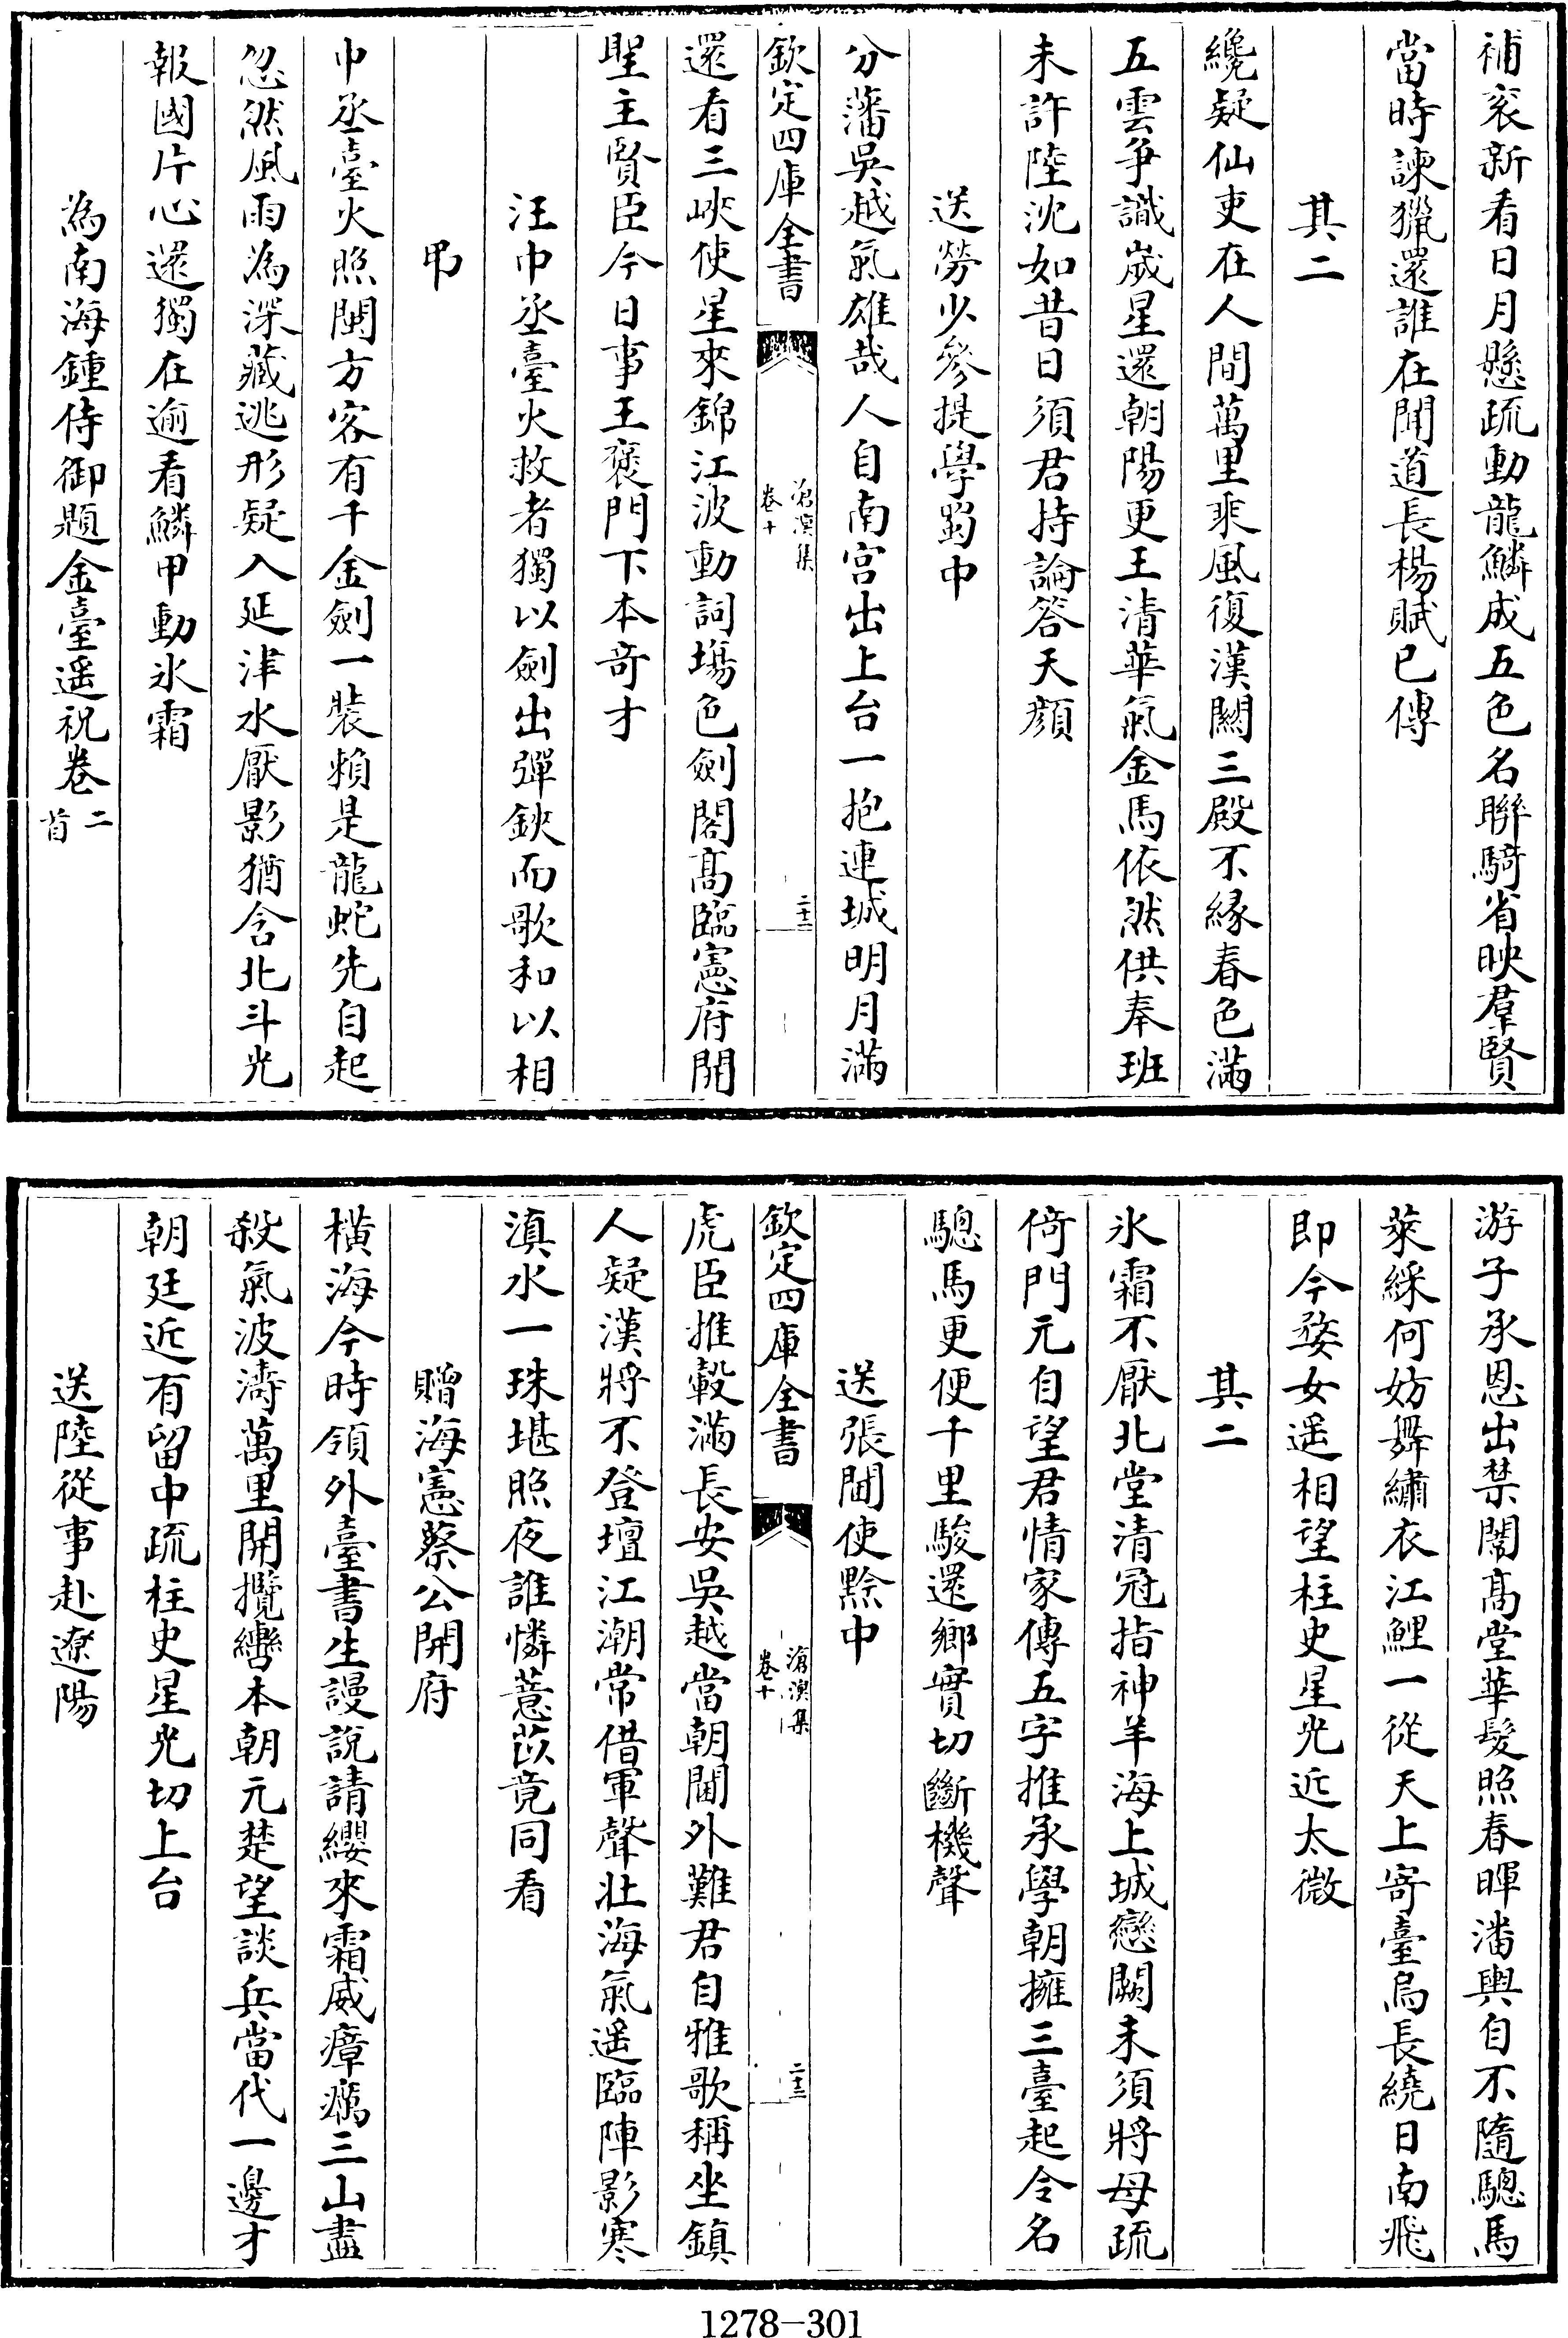 補衮新看日月懸疏動龍鱗成五色名聯騎省映羣賢
當時諫獵還誰在聞道長楊賦已傳
其二
纔疑仙吏在人間萬里乘風復漢闕三殿不緣春色滿
五雲爭識嵗星還朝陽更王清華氣金馬依然供奉班
未許陸沈如昔日須君持論答天顔
送勞少參提學蜀中
分藩吳越氣雄哉人自南宮出上台一抱連城明月滿
欽定四庫全書
滄溟集
卷十
二十二
還看三峽使星來錦江波動詞塲色劍閣髙臨憲府開
聖主賢臣今日事王襃門下本奇才
汪中丞臺火救者獨以劍出彈鋏而歌和以相
弔
中丞臺火照閩方客有千金劍一裝頼是龍蛇先自起
忽然風雨為深藏逃形疑入延津水厭影猶含北斗光
報國片心還獨在逾看鱗甲動氷霜
為南海鍾侍御題金臺遥祝卷二首
游子承恩出禁闈髙堂華髮照春暉潘輿自不隨驄馬
萊綵何妨舞繡衣江鯉一從天上寄臺烏長繞日南飛
即今婺女遥相望柱史星光近太微
其二
氷霜不厭北堂清冠指神羊海上城戀闕未須將母疏
倚門元自望君情家傳五字推承學朝擁三臺起令名
驄馬更便千里駿還鄉實切斷機聲
送張閫使黔中
欽定四庫全書
滄溟集
卷十
二十三
虎臣推轂滿長安吳越當朝閫外難君自雅歌稱坐鎮
人疑漢將不登壇江潮常借軍聲壯海氣遥臨陣影寒
滇水一珠堪照夜誰憐薏苡竟同看
贈海憲蔡公開府
橫海今時領外臺書生謾說請纓來霜威瘴癘三山盡
殺氣波濤萬里開攬轡本朝元楚望談兵當代一邊才
朝廷近有留中疏柱史星光切上台
送陸從事赴遼陽
1278-301